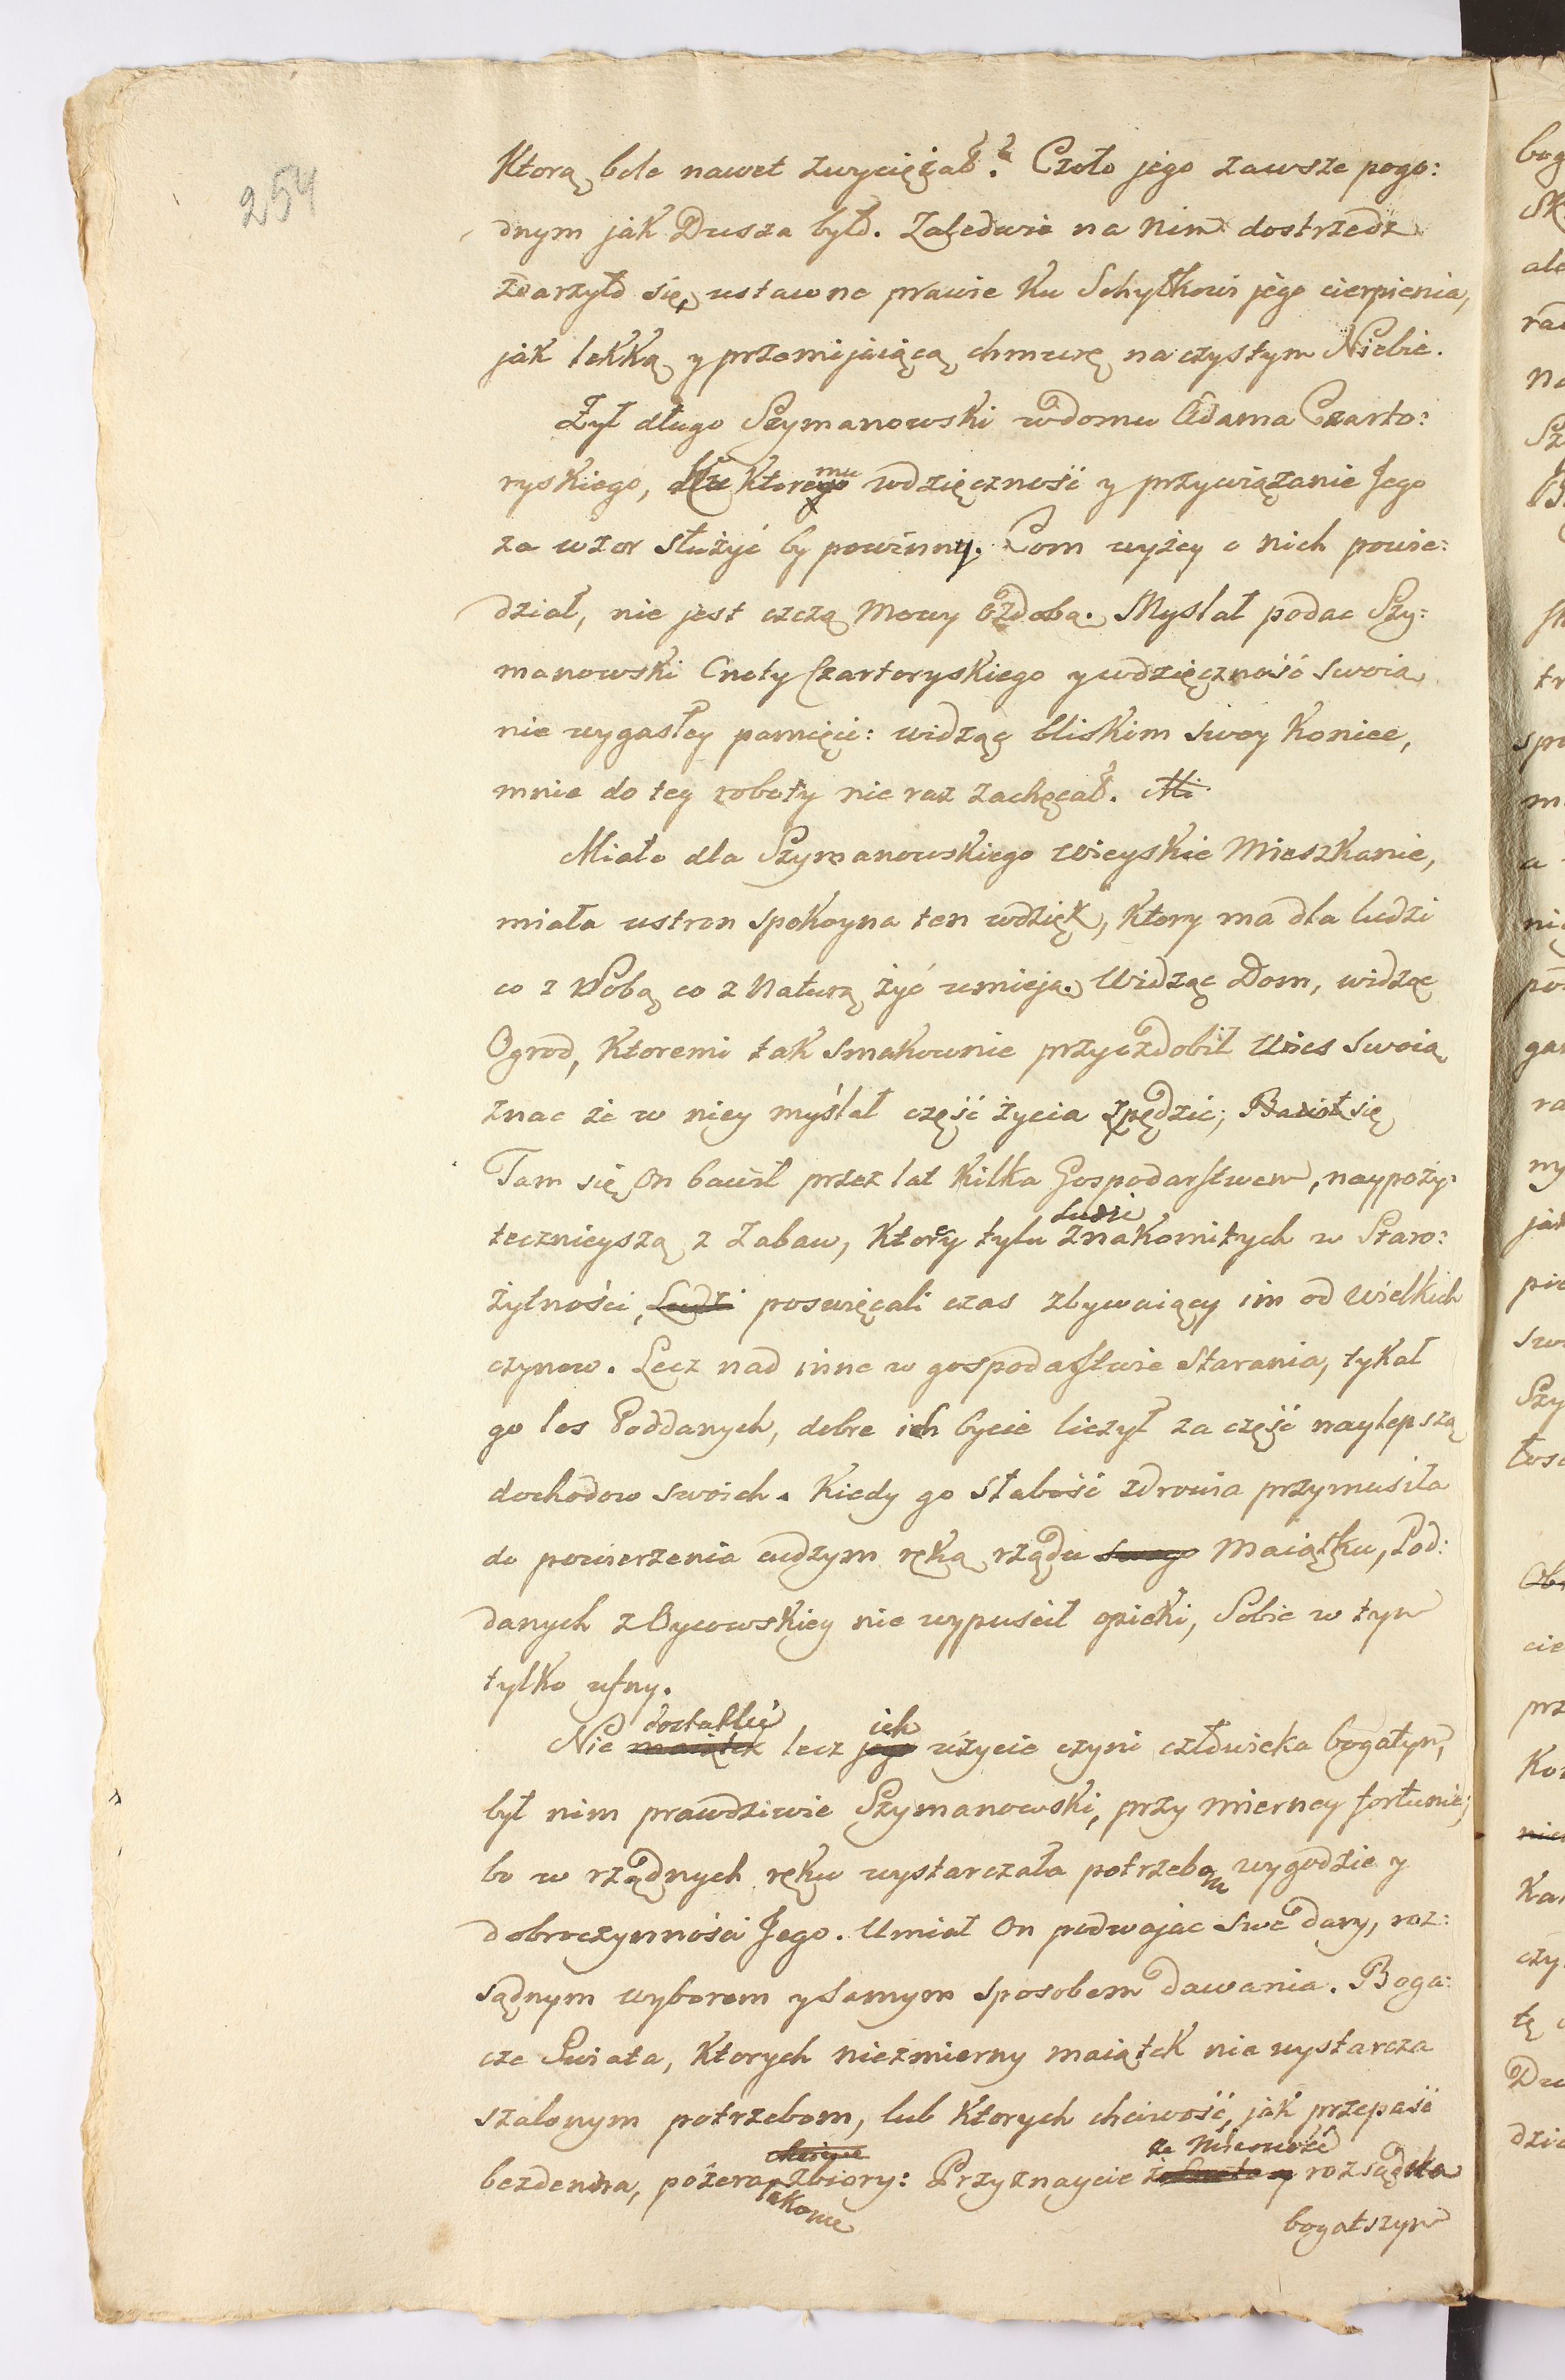 254
Ktorą bole nawet zwyciężał. Czoło jego zawsze pogo:
dnym jak Dusza było. Zaledwie na nim dostrzedz
zdarzyło się, ustawne prawie ku Schyłkowi jego cierpienia,
jak lekką y przemijaiącą chmurę na czystym Niebie.
Żył długo Szymanowski w domu Adama Czarto:
ryskiego, ku ktoremu wdzięczność y przywiązanie Jego
za wzor służyć by powinny. Com wyżey o nich powie:
dział, nie jest czczą mowy ozdobą. Myslał podac Szy:
manowski Cnoty Czartoryskiego y wdzięczność swoią
nie wygasłey pamięci: widząc bliskim swoy koniec,
mnie do tey roboty nie raz zachęcał. Mi
Miało dla Szymanowskiego wieyskie Mieszkanie,
miała ustron spokoyna ten wdzięk, ktory ma dla ludzi
co z Sobą co z Naturą żyć umieją. Widząc Dom, widząc
Ogrod, ktoremi tak smakownie przyozdobił Wies swoią
znac że w niey myślał część życia spędzic; Bawił się
Tam się on bawił przez lat kilka Gospodarstwem, naypoży:
ludzi
tecznieyszą z zabaw, ktorey tylu znakomitych w Staro:
żytności, Ludzi poswięcali czas zbywaiący im od wielkich
czynow. Lecz nad inne w gospodarstwie starania, tykał
go los Poddanych, dobre ich bycie liczył za część naylepszą
dochodow swoich. Kiedy go słabość zdrowia przymusiła
do powierzenia cudzym ręką rządu swego Maiątku, Pod:
danych z Oycowskiey nie wypuscił opieki, Sobie w tym
tylko ufny.
dostatki ich
Nie maiątek lecz jego użycie czyni człowieka bogatym,
był nim prawdziwie Szymanowski, przy mierney fortunie;
bo w rządnych ręku wystarczała potrzebom wygodzie y
dobroczynności Jego. Umiał On podwajac swe dary, roz:
sądnym wyborem y samym sposobem dawania. Boga:
cze Swiata, ktorych niezmierny maiątek nie wystarcza
szalonym potrzebom, lub ktorych chciwość, jak przepaść
chciwe że Mierność
bezdenna, pożera zbiory: Przyznaycie rozsądka
łakome
bogatszym